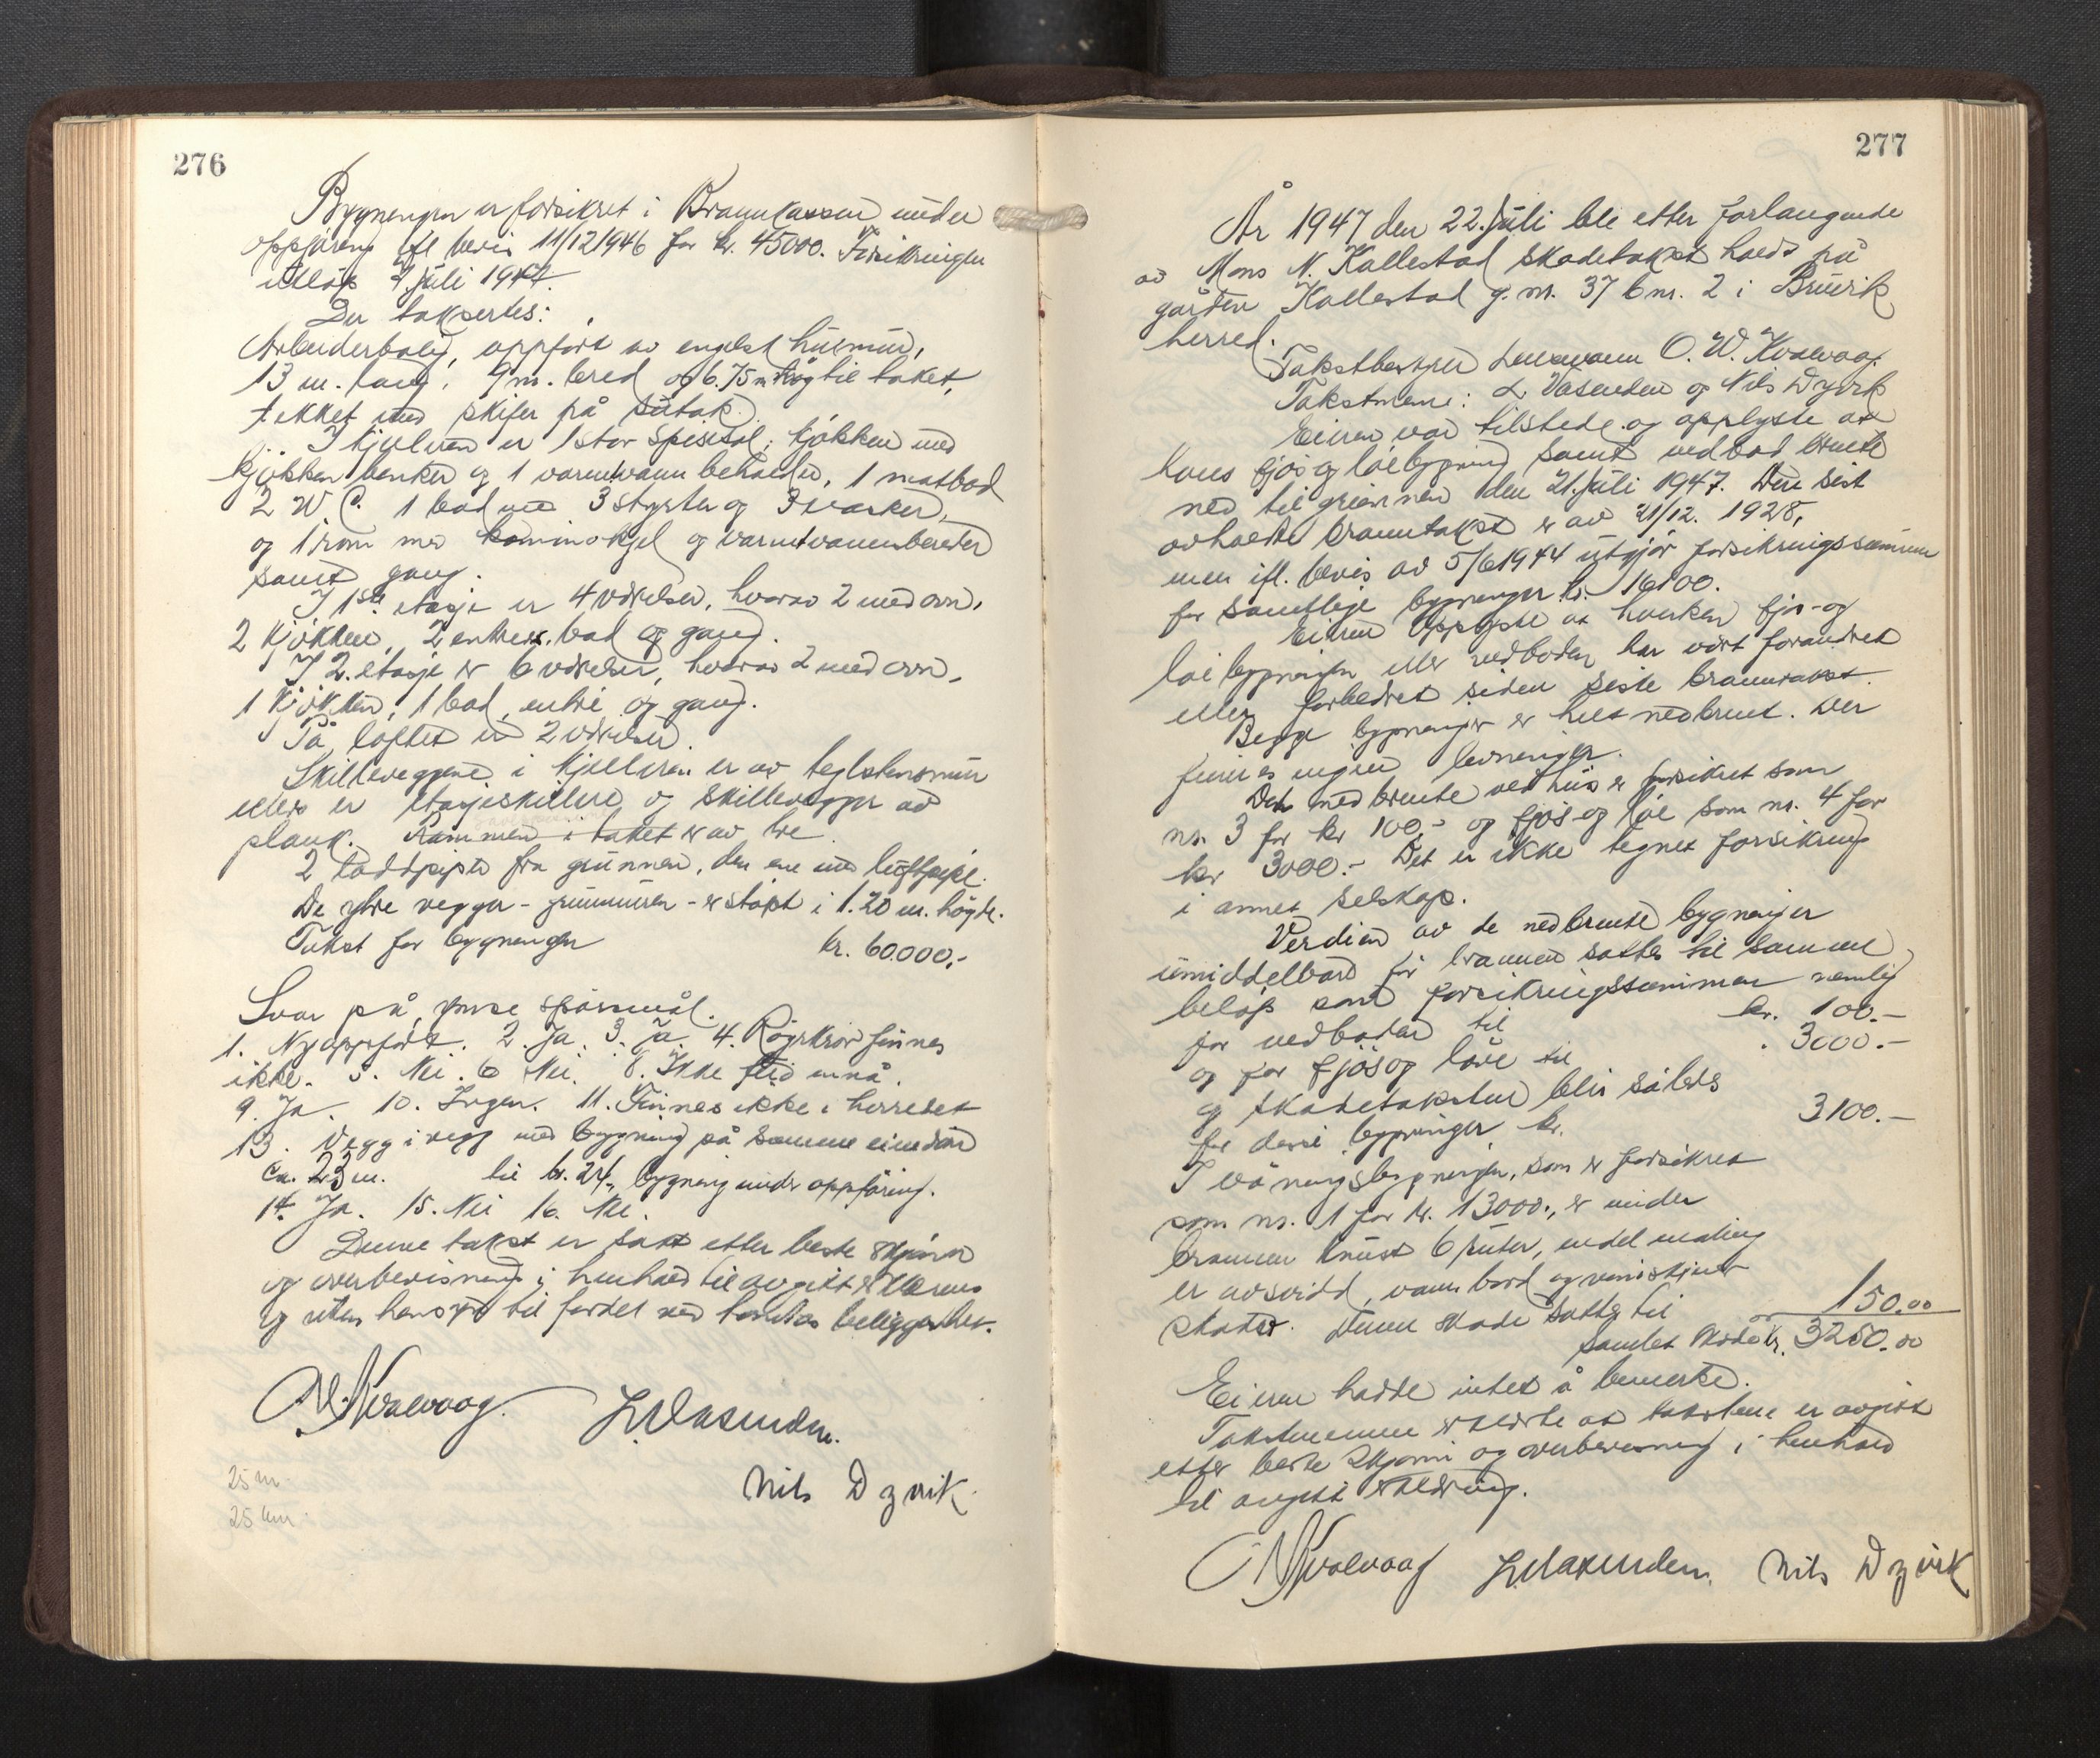 276
Bygningen er forsikret i Brannkassen under
oppføring ifl. bevis 11/12 1946 for kr. 45000. Forsikringen
utløp 7. juli 1947.
Der takseres:
Arbeiderbolig, oppført av engelsk husmur,
13 m. lang, 9 m. bred og 6.75 m høg til taket,
tekket med skifer på sutak.
I kjelleren er 1 stor spisesal, kjøkken med
kjøkkenbenker og 1 varmtvannbeholder, 1 matbod
2 W C. 1 bad med 3 styrter og 3 vasker,
og 1 rom med kaminokjel og varmtvannsbereder
samt gang.
I 1ste etasje er 4 værelser, hvorav 2 med ovn,
2 kjøkken, 2 entreer, bad og gang.
I 2. etasje er 6 værelser, hvorav 2 med ovn,
1 kjøkken, 1 bad, entre og gang.
På loftet er 2 værelser.
Skilleveggene i kjelleren er av teglstensmur
ellers er etasjeskillere og skillevegger av
plank. Rammen i taket er av tre
2 pipe fra grunnen, den ene med luftpipe.
De ytre vegger - grunnmuren - er støpt i 1.20 m. høgde.
Takst for bygningen kr. 60.000,-
Svar på spørsmål.
1. Nyoppført. 2. Ja. 3. Ja. 4. Røyrkrov finnes
ikke. 5. Nei. 6 Nei. 8. Ikke ennå.
9. Ja. 10. Ingen. 11. Finnes ikke i herredet
13. Vegg i vegg med bygning på samme eiendom
Ca. 23 m. til br. 24, bygning under oppføring.
14. Ja. 15. Nei 16. Nei.
Denne takst er satt etter beste skjønn
og overbevisning i henhold til avgitt
og uten hensyn til fordel ved tomtens beliggenhet.
O W Kvalvaag. L. Vasenden.
Nils Dyvik.
25 m.
25 km.
277
År 1947 den 22. juli ble etter forlangende
av Mons N. Kallestad skadetakst holdt på
gården Kallestad g. nr. 37 b nr. 2 i Bruvik
herred.
Takstbestyrer lensmann O. W. Kvalvaag.
Takstmenn: L. Vasenden og Nils Dyvik
Eieren var tilstede og opplyste at
hans fjøs og løebygning samt vedbod brente
ned til grunnen den 21. juli 1947. Den sist
avholdte branntakst er av 21/12. 1928,
men ifl. bevis av 5/6 1944 utgjør forsikringssummen
for samtlige bygninger kr. 16100.
Eieren opplyste at hverken fjøs- og
løebygningen eller vedboden har vært forandret
eller forbedret siden siste branntakst.
Begge bygninger er helt nedbrent. Der
finnes ingen levninger.
Det nedbrente vedhus er forsikret som
nr. 3 for kr 100,- og fjøs og løe som nr. 4 for
kr 3000.- Det er ikke tegnet forsikring
i annet selskap.
Verdien av de nedbrente bygninger
umiddelbart før brannen settes til samme
beløp som forsikringssummen nemlig
for vedboden til kr. 100.-
og for fjøs og løe til 3000.-
og skadetaksten blir således
for disse bygninger kr. 3100.-
I våningsbygningen, som er forsikret
som nr. 1 for kr. 13000., er under
brannen knust 6 ruter, endel maling
er avsvidd, vannbord og
skadet. Denne skade settes til 150.00
Samlet skade kr. 3250.00
Eieren hadde intet å bemerke.
Takstmennene erklærte at takstene er avgitt
etter beste skjønn og overbevisning i henhold
til avgitt erklæring.
O W Kvalvaag L. Vasenden. Nils Dyvik